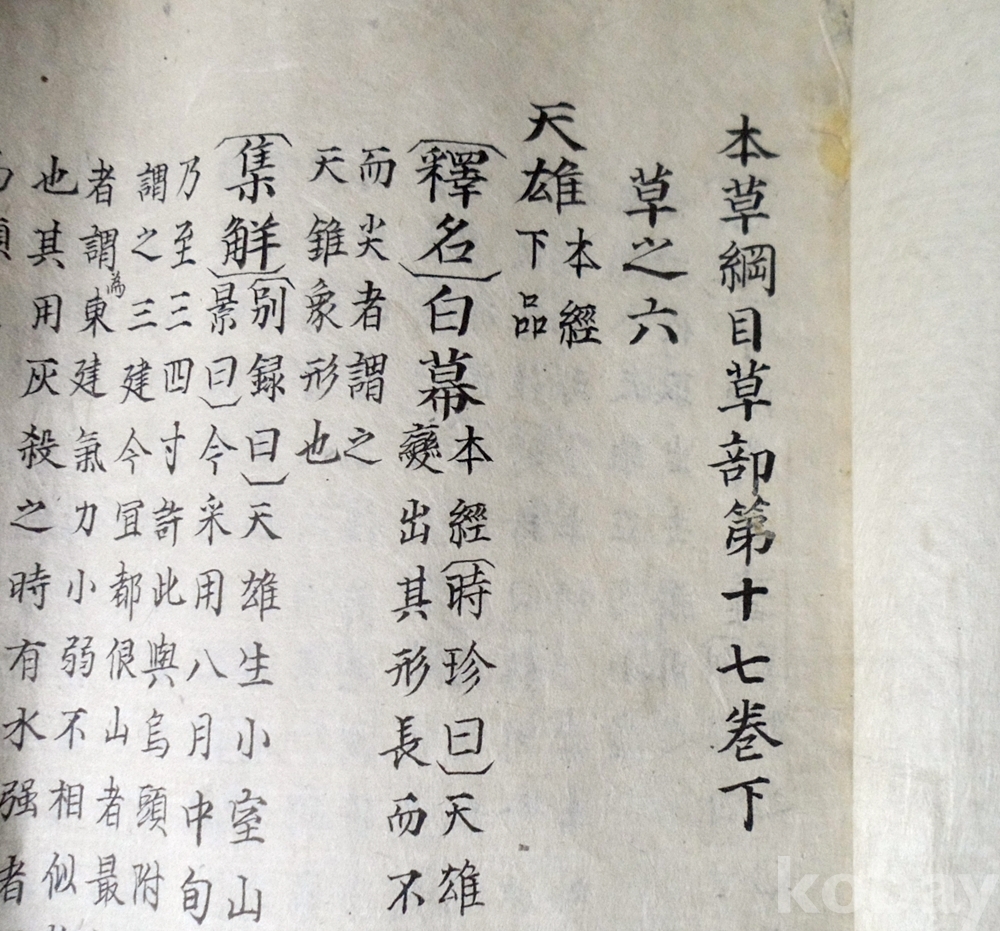 本草綱目草部第十七卷下
草之六
天雄本經
下品
〔釋名〕白幕本經〔時珍曰〕天雄
變出其形長而不
而尖者謂之
天錐象形也
〔集解〕〔别録曰〕天雄生小室山
景曰〕今采用八月中旬
乃至三四寸許此與烏頭附
謂之三建今冝都佷山者最
者謂為東建氣力小弱不相似
也其用灰殺之時有水强者